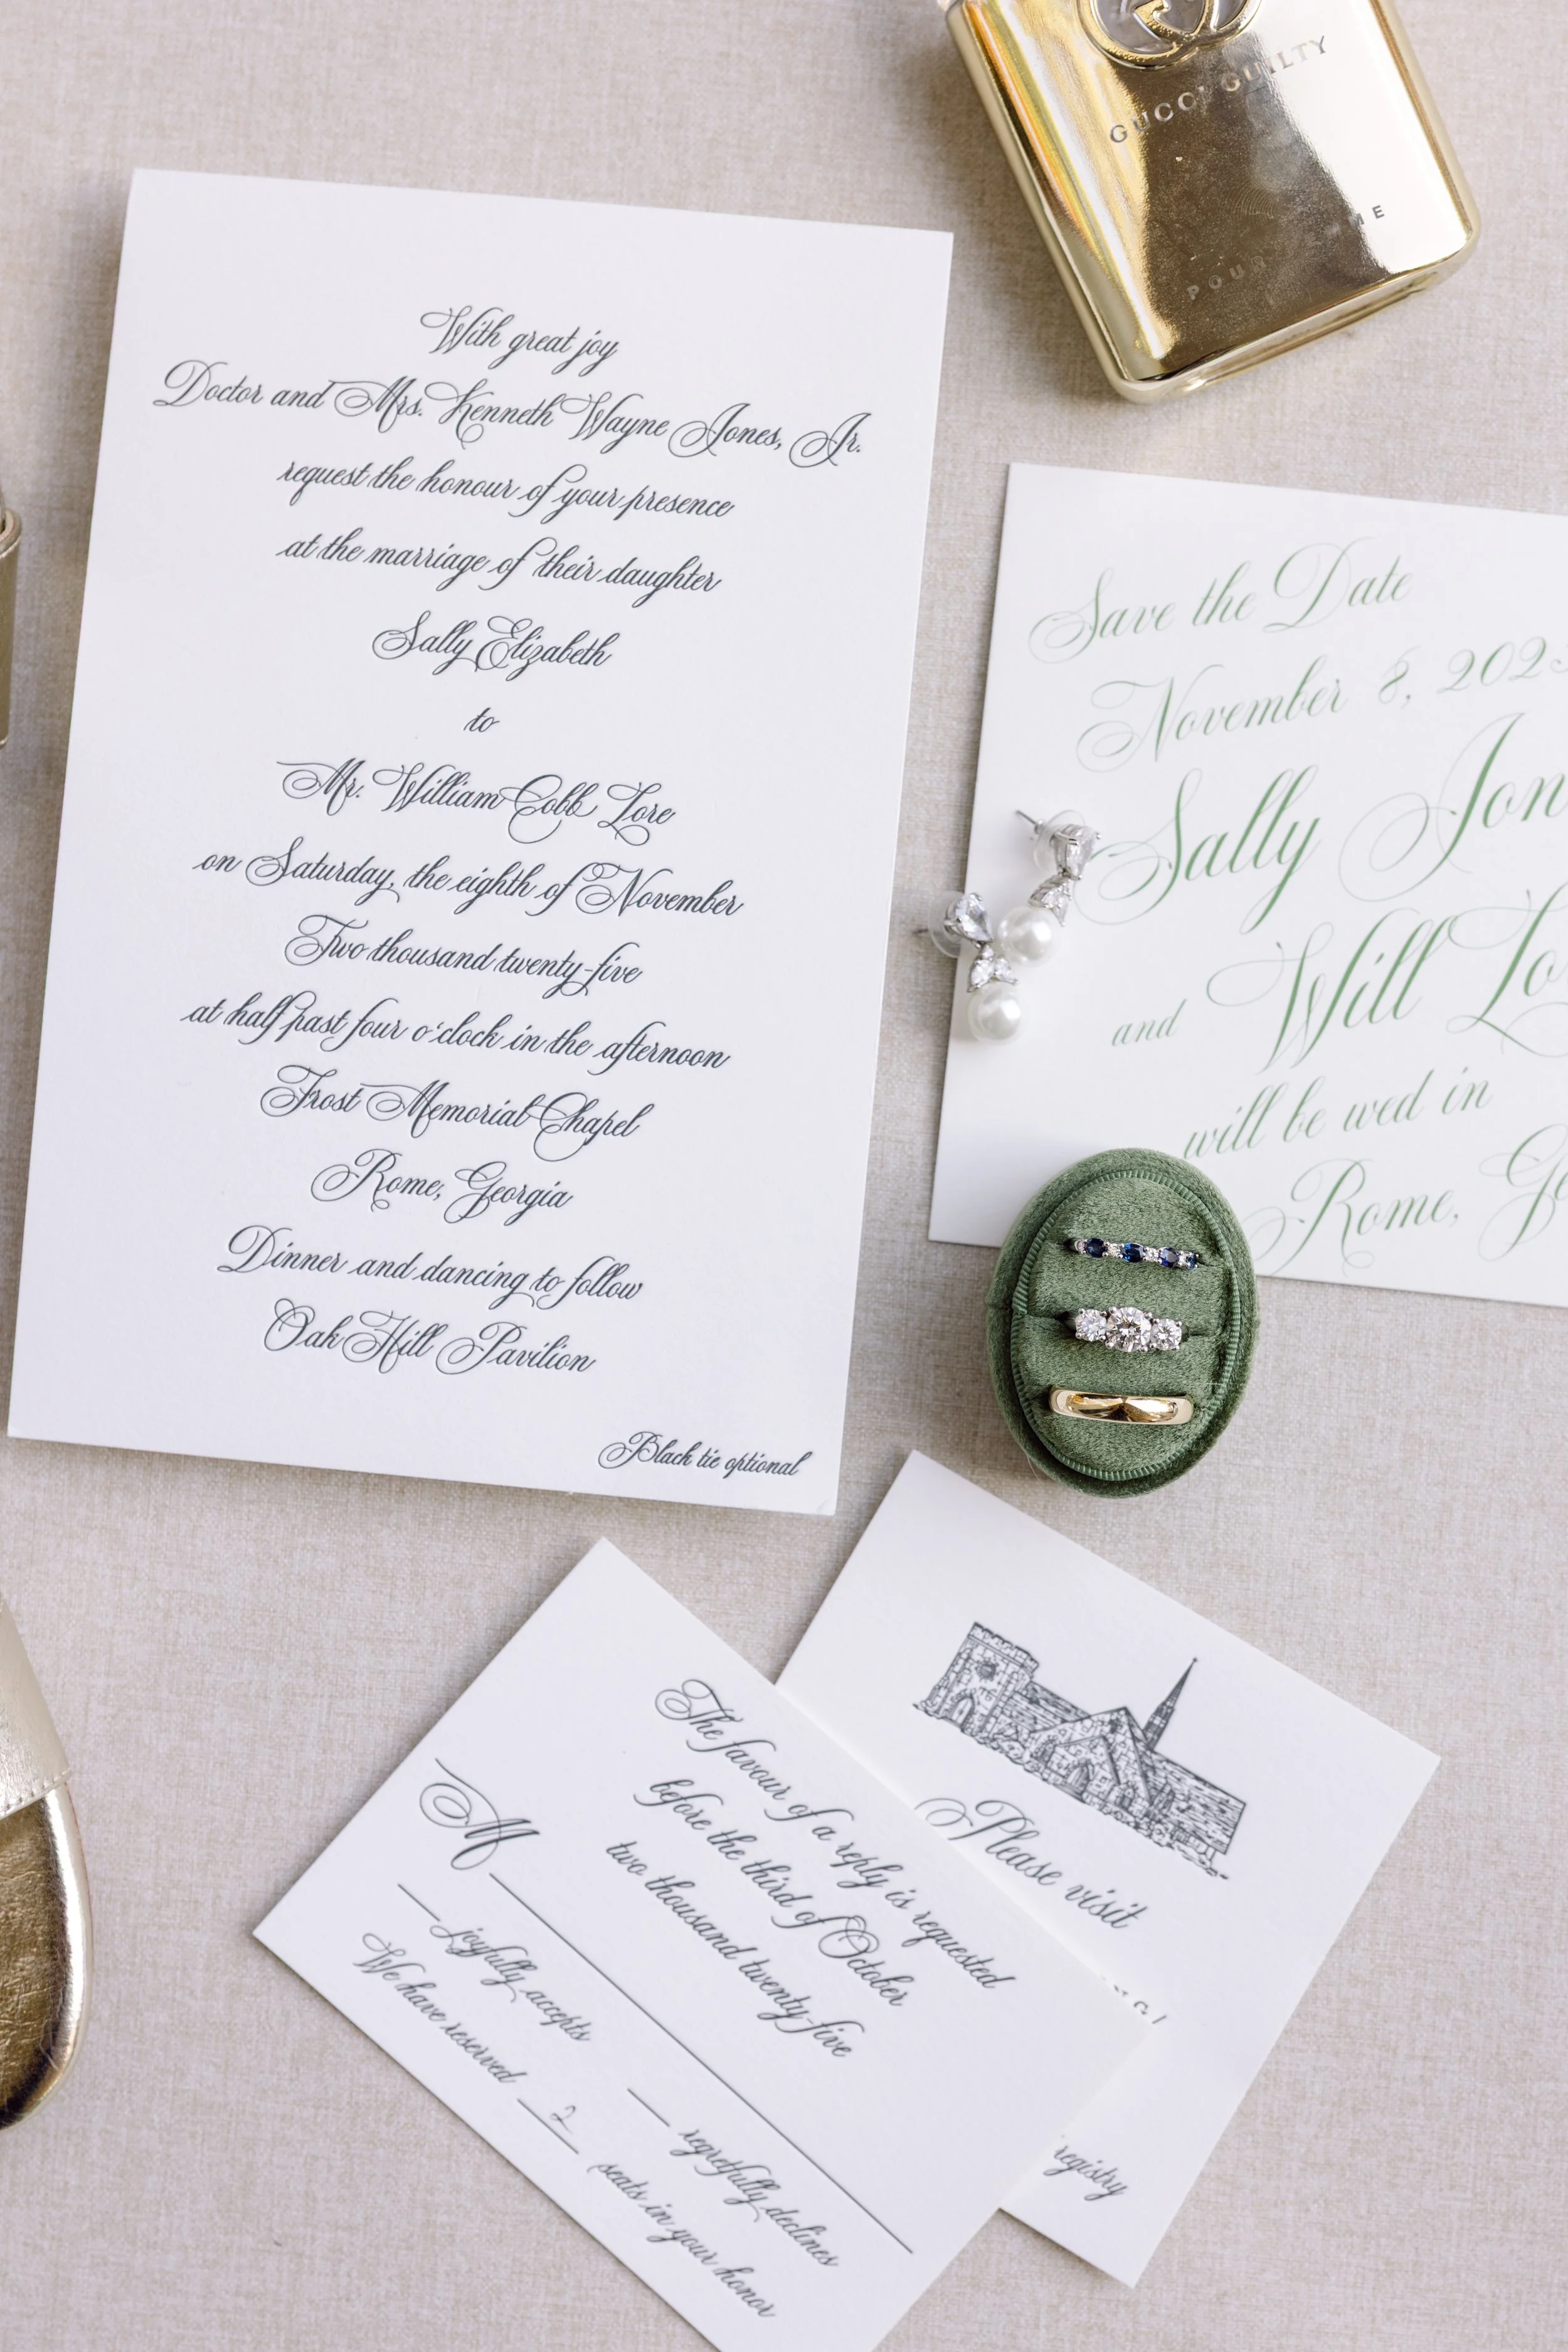 With great joy
Doctor and Mrs. Kenneth Wayne Jones, Jr.
request the honour of your presence
at the marriage of their daughter
Sally Elizabeth
to
Mr. William Cobb Lore
on Saturday, the eighth of November
Two thousand twenty-five
at half past four o'clock in the afternoon
Frost Memorial Chapel
Rome, Georgia
Dinner and dancing to follow
Oak Hill Pavilion
Black tie optional
GUCCI GUILTY
POUR
Save the Date
November 8, 202
Sally Jon
and Will Lo
will be wed in
Rome, Ge
The favour of a reply is requested
before the third of October
two thousand twenty-five
M
joyfully accepts
regretfully declines
We have reserved 2 seats in your honor
Please visit
registry